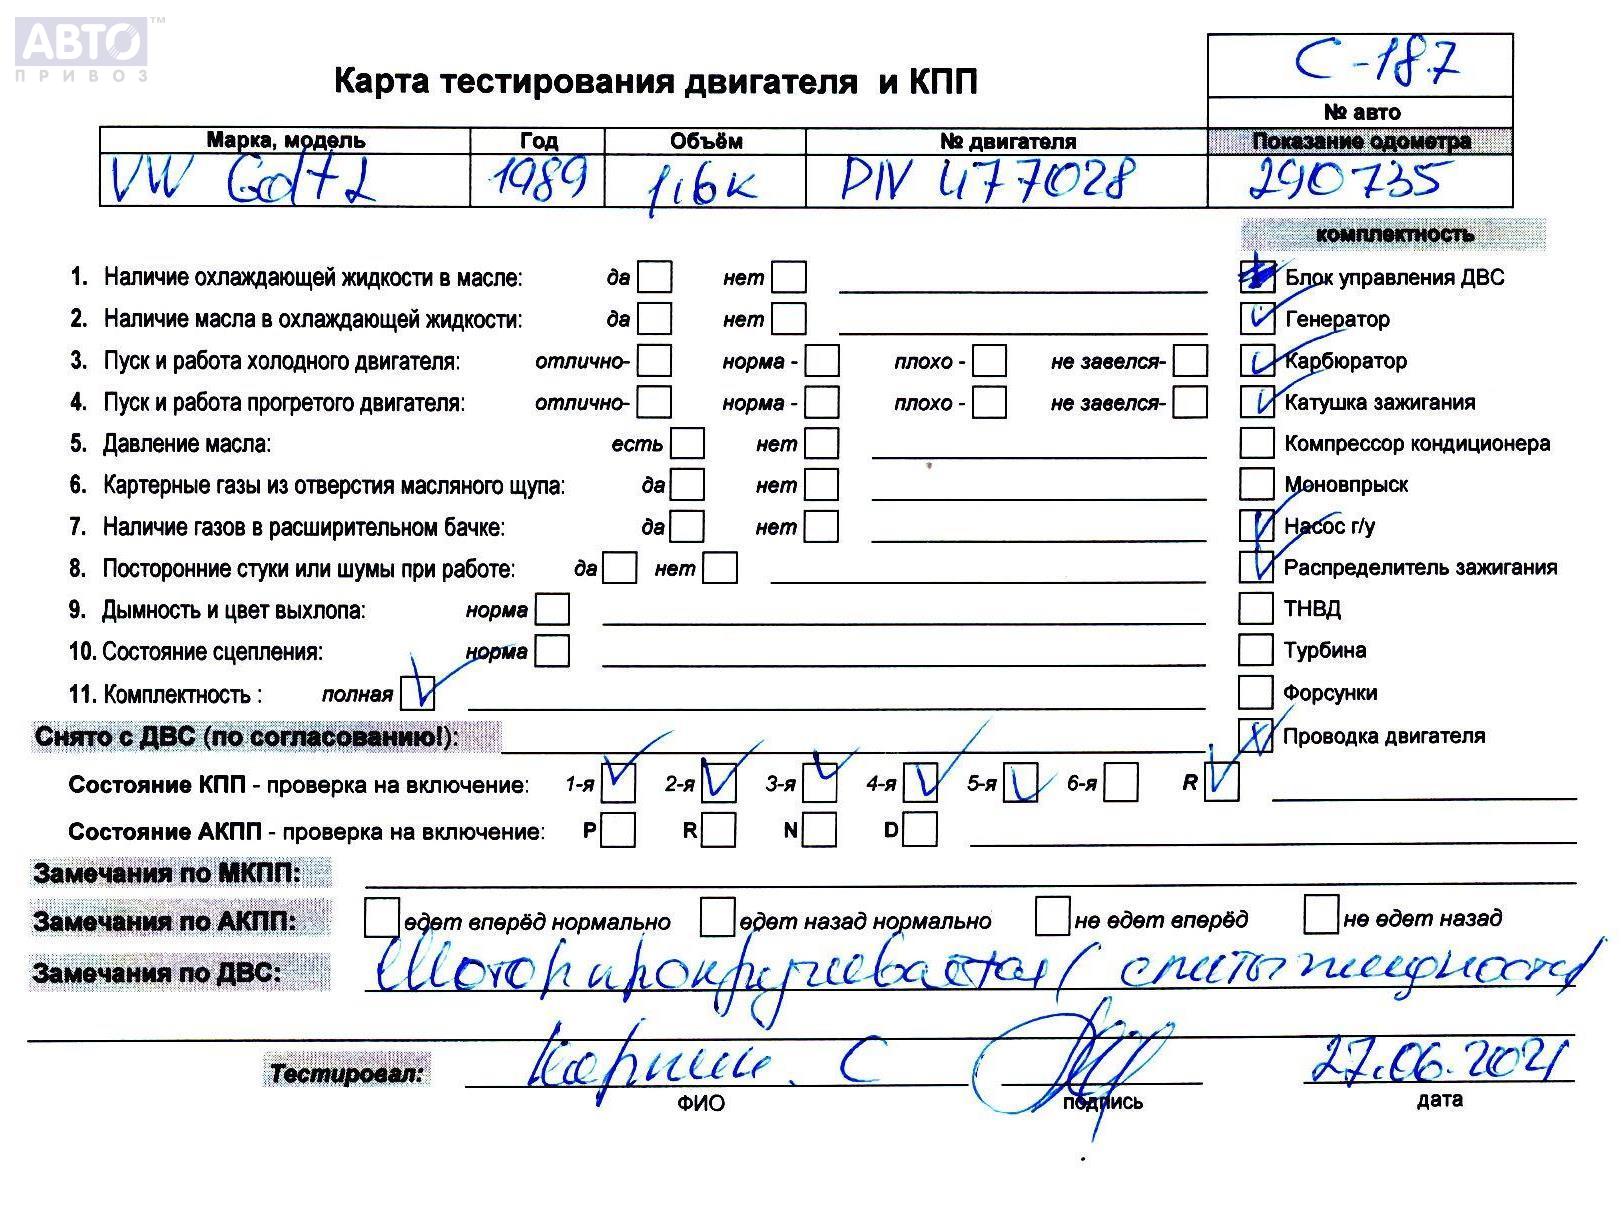 АВТО™
ПРИВОЗ
Карта тестирования двигателя и КПП
С-187
№ авто
Марка, модель Год Объём № двигателя Показание одометра
VW Golf 2 1989 1,6к PN 477028 290735
комплектность
1. Наличие охлаждающей жидкости в масле: да нет Блок управления ДВС
2. Наличие масла в охлаждающей жидкости: да нет Генератор
3. Пуск и работа холодного двигателя: отлично- норма - плохо - не завелся- Карбюратор
4. Пуск и работа прогретого двигателя: отлично- норма - плохо - не завелся- Катушка зажигания
5. Давление масла: есть нет Компрессор кондиционера
6. Картерные газы из отверстия масляного щупа: да нет Моновпрыск
7. Наличие газов в расширительном бачке: да нет Насос г/у
8. Посторонние стуки или шумы при работе: да нет Распределитель зажигания
9. Дымность и цвет выхлопа: норма ТНВД
10. Состояние сцепления: норма Турбина
11. Комплектность : полная Форсунки
Снято с ДВС (по согласованию!): Проводка двигателя
Состояние КПП - проверка на включение: 1-я 2-я 3-я 4-я 5-я 6-я R
Состояние АКПП - проверка на включение: P R N D
Замечания по МКПП:
Замечания по АКПП: едет вперёд нормально едет назад нормально не едет вперёд не едет назад
Замечания по ДВС: Мотор прокручивается ( слиты жидкости)
Тестировал: С 27.06.2021
ФИО подпись дата